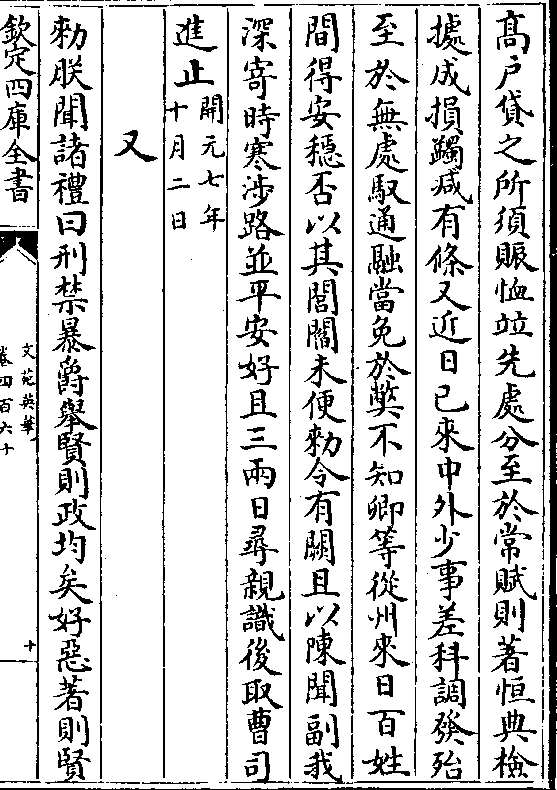 髙戸貸之所須賑恤竝先處分至於常賦則著恒典檢
據成損蠲減有條又近日已來中外少事差科調發殆
至於無處馭通融當免於弊不知卿等從州來日百姓
間得安穩否以其閭閻未便勅令有闕且以陳聞副我
深寄時寒渉路並平安好且三兩日尋親識後取曹司
進止開元七年
十月二日
又
勅朕聞諸禮曰刑禁暴爵舉賢則政均矣好惡著則賢
欽定四庫全書
文苑英華
卷四百六十
十